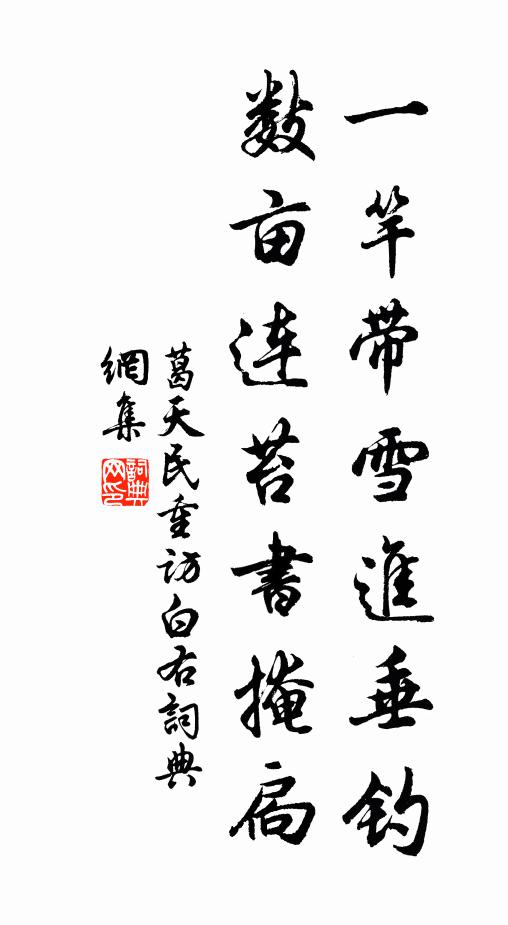 一竿带雪進垂钓
数亩连苔書掩扃
葛天民重访白右詞典
網集
詞典
网印